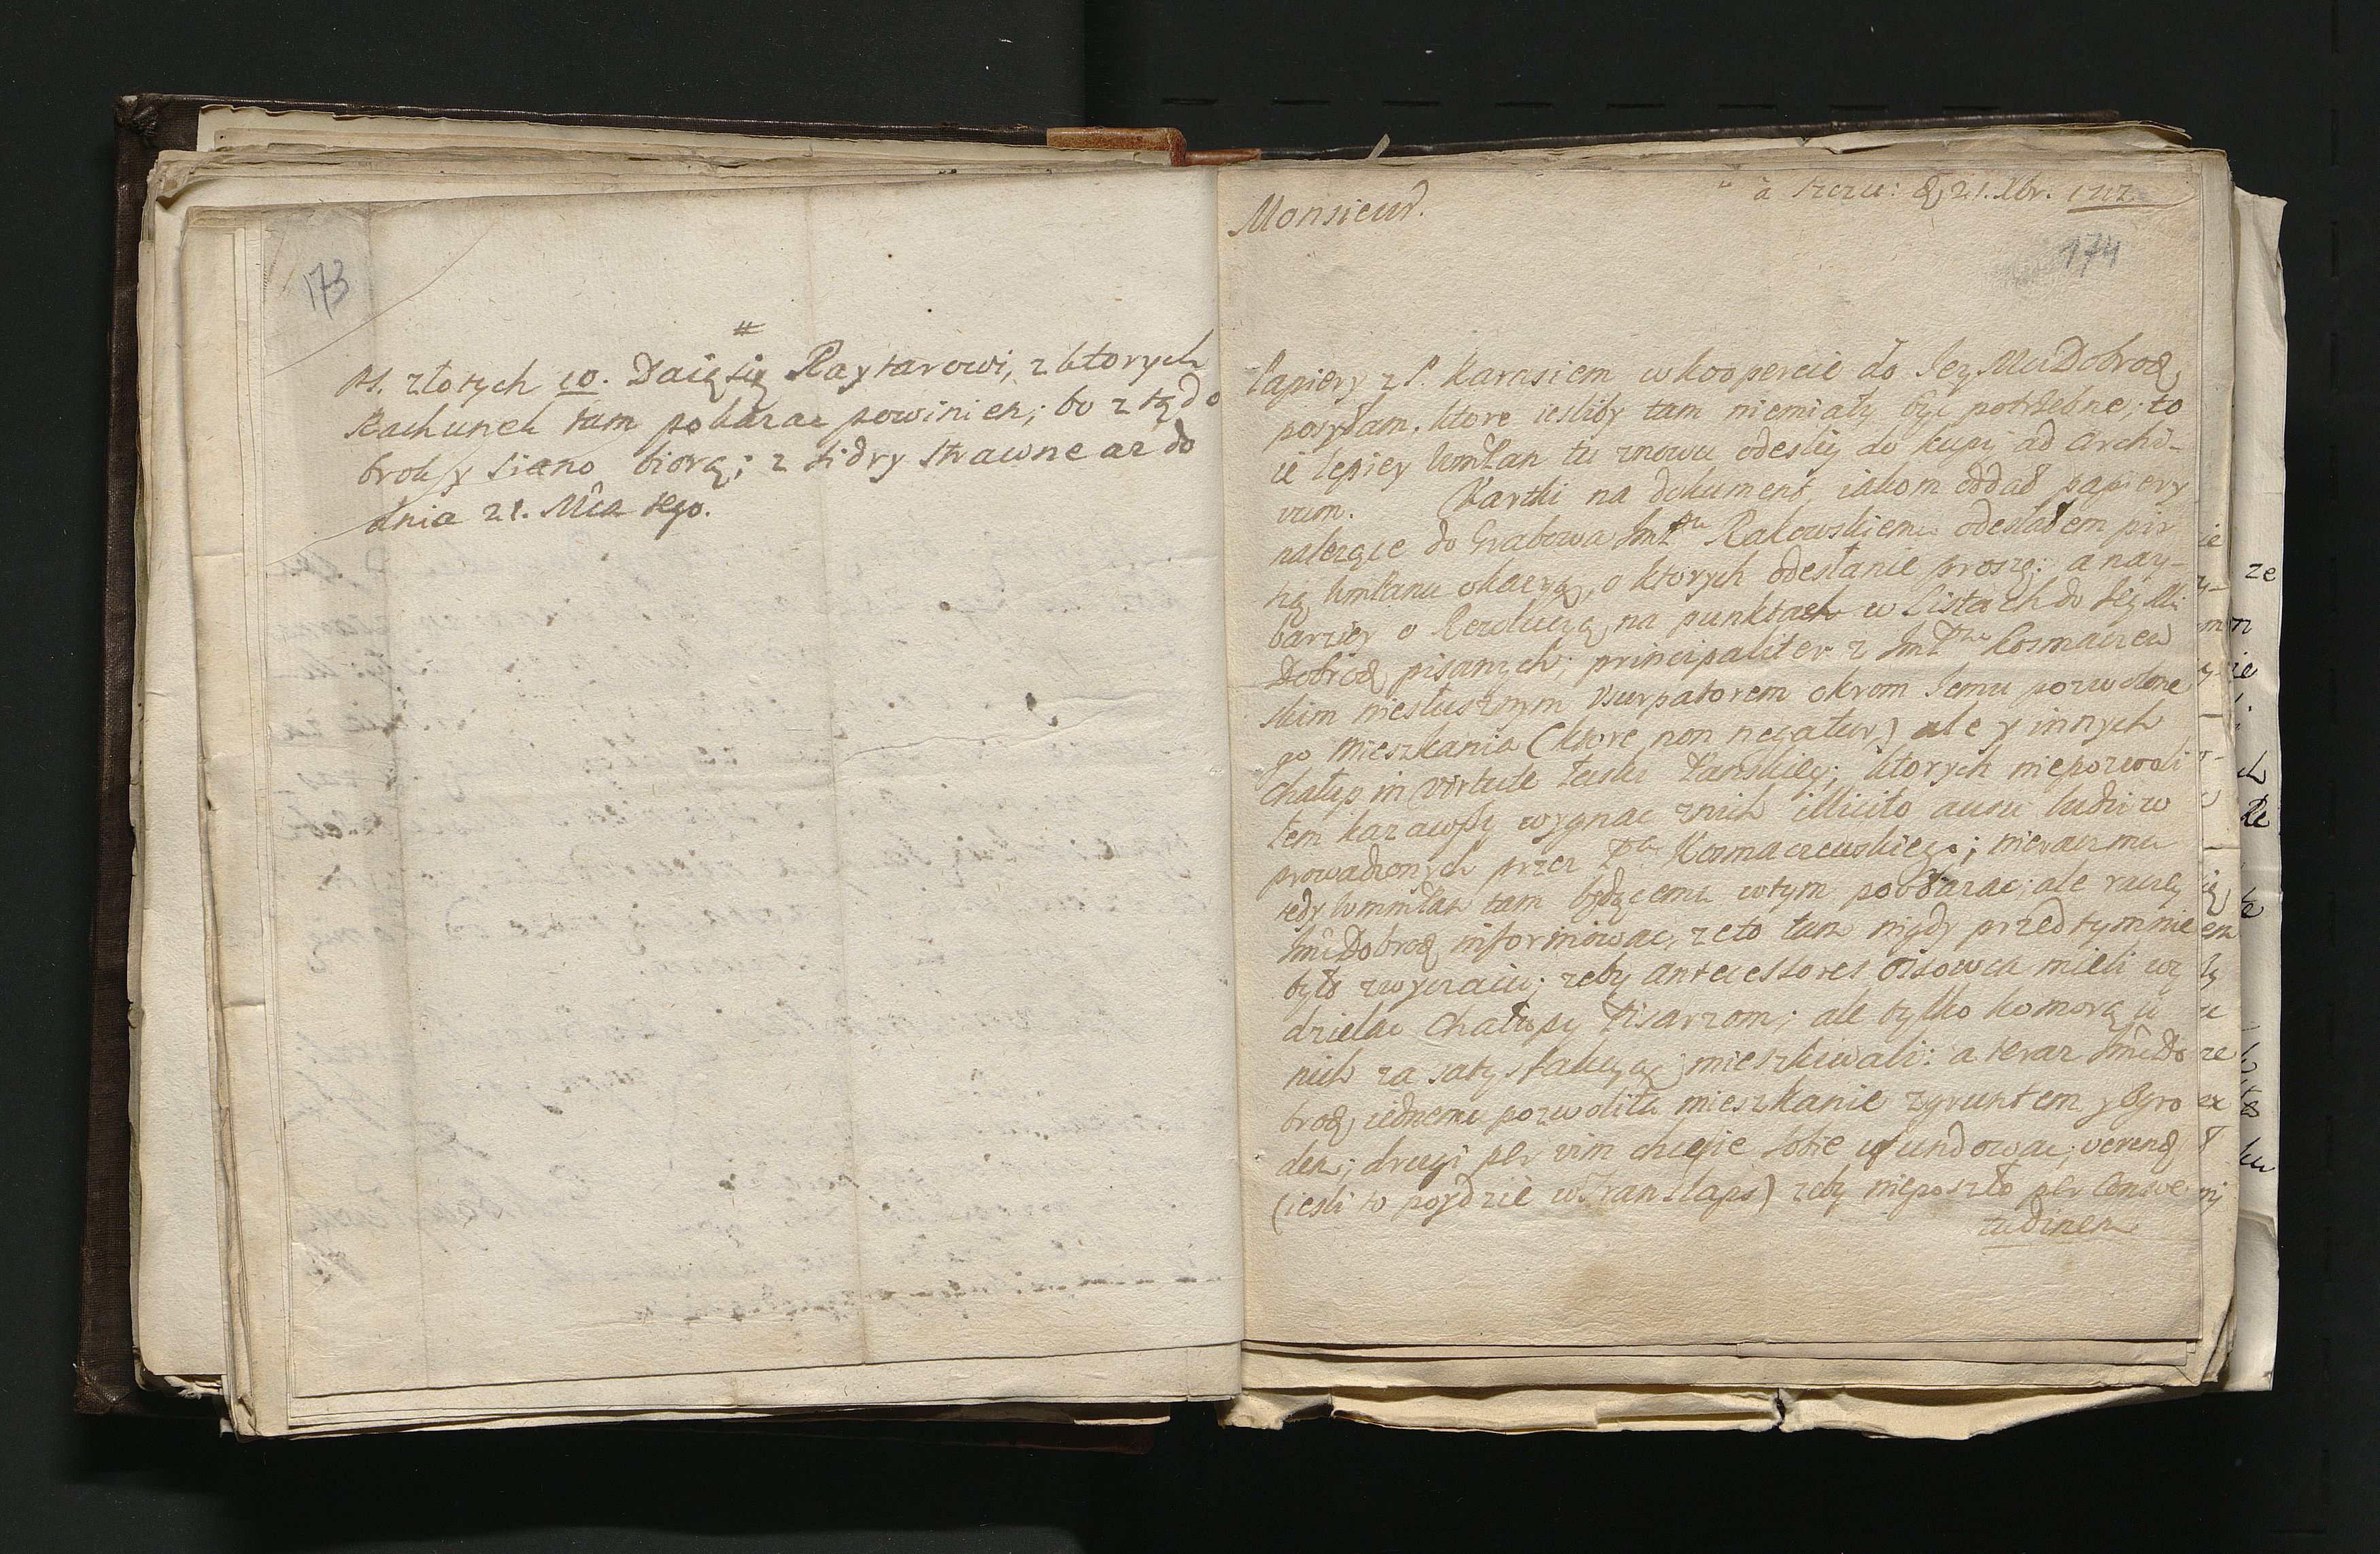 173
#
PS. złotych 10. Daię się Raytarowi, z ktorych
Rachunek tam pokazac powinien; bo z tąd o
brok y siano biorą; z tidry strawne az do
dnia 21. Mca tego.
à 21. Xbr. 1712
Monsieur.
174
Papiery z P. Karasiem w koopercie do Jey Mci Dobrodz
posyłam. ktore iesliby tam niemiały być potrzebne; to
ie lepiey WmPan tu znowu odesliy do kupy ad Archi-
vum. Kartki na dokument, iakom oddał papiery
nalezące do Grabowa Rakowskiemu odesłałem pir
szą WmPanu okazyą, o ktorych odesłanie proszę: a nay-
barziey o Rezolucyą na punktach w Listach do Jey Mci
Dobrodz pisanych; principaliter z Kosmaczew
skim niesłusznym Usurpatorem okrom Jemu pozwolone
go mieszkania (ktore non negatur) ale y innych
chałup in virtute Pańskiey; ktorych niepozwoli
łem kazawszy wygnac znich illicito ausu ludzi w
prowadzonych przez Pa Kosmaczewskiego; nieraczmu
tedy WmmPan tam będącemu wtym pobłazac; ale raczey
Dobrodz informowac, ze to tam nigdy przed tym nie
było zwyczaiu; zeby antecessores mieli wy
dzielac Chałupy Pisarzom; ale tylko komorą u
nich za satysfakcyą mieszkiwali: a teraz Do
brodz iednemu pozwoliła mieszkanie zgruntem y Ogro
dem; drugi per vim chcesie sobie ufundowac; verend
(iesli to poydzie w ) zeby nieposzło per Consue
tudinem